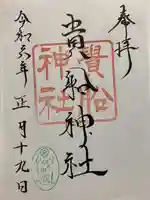 奉拝
貴船神社
貴船神社
令和六年正月十九日